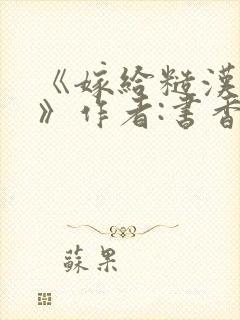 《嫁給糙漢
》作者:書香
蘇果